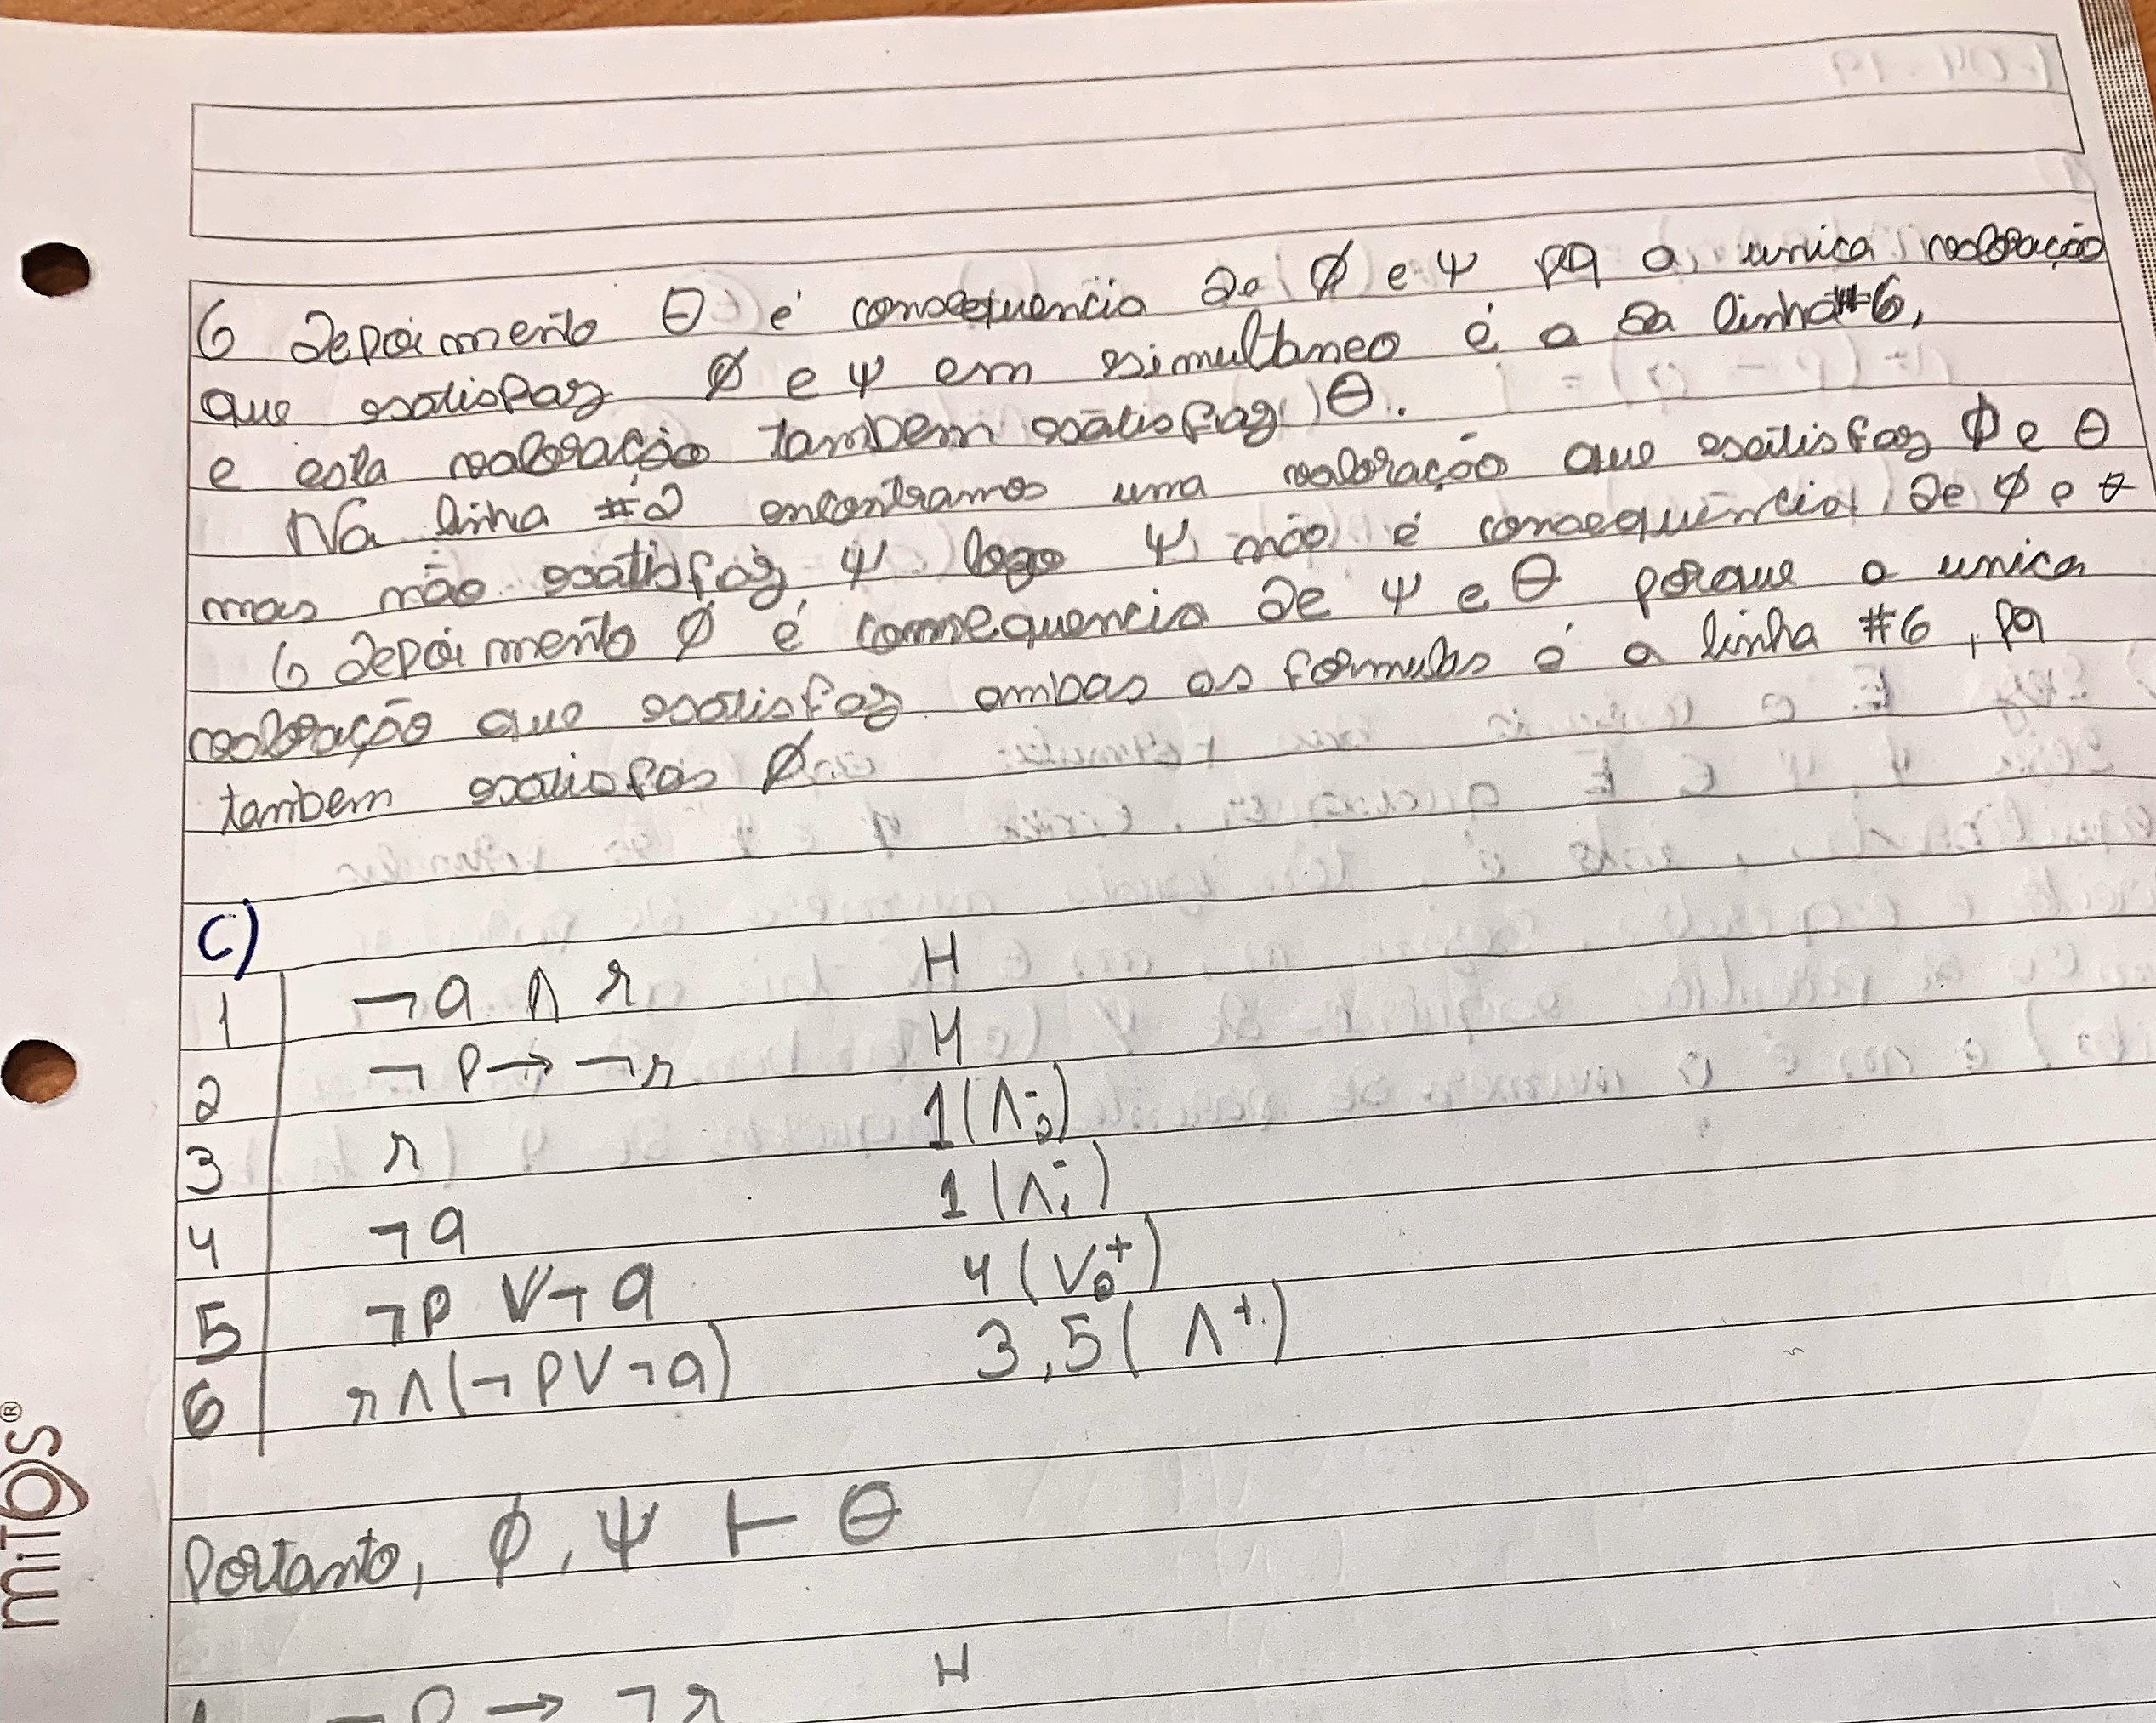 O depoimento Θ é consequencia de Ø e Ψ pq a unica valoração
que satisfaz Ø e Ψ em simultaneo é a da linha #6,
e esta valoração tambem satisfaz Θ.
Na linha #2 encontramos uma valoração que satisfaz Φ e Θ
mas não satisfaz Ψ logo Ψ não é consequência de Ø e Θ
O depoimento Ø é consequencia de Ψ e Θ porque a unica
valoração que satisfaz ambas as formulas é a linha #6, pq
tambem satisfas Ø
C)
1 ¬q ∧ r H
2 ¬p → ¬r H
3 r 1(∧₂⁻)
4 ¬q 1(∧₁⁻)
5 ¬p ∨ ¬q 4(∨₂⁺)
6 r ∧ (¬p ∨ ¬q) 3,5(∧⁺)
Portanto, Ø, Ψ ⊢ Θ
1 ¬p → ¬r H
mitos®